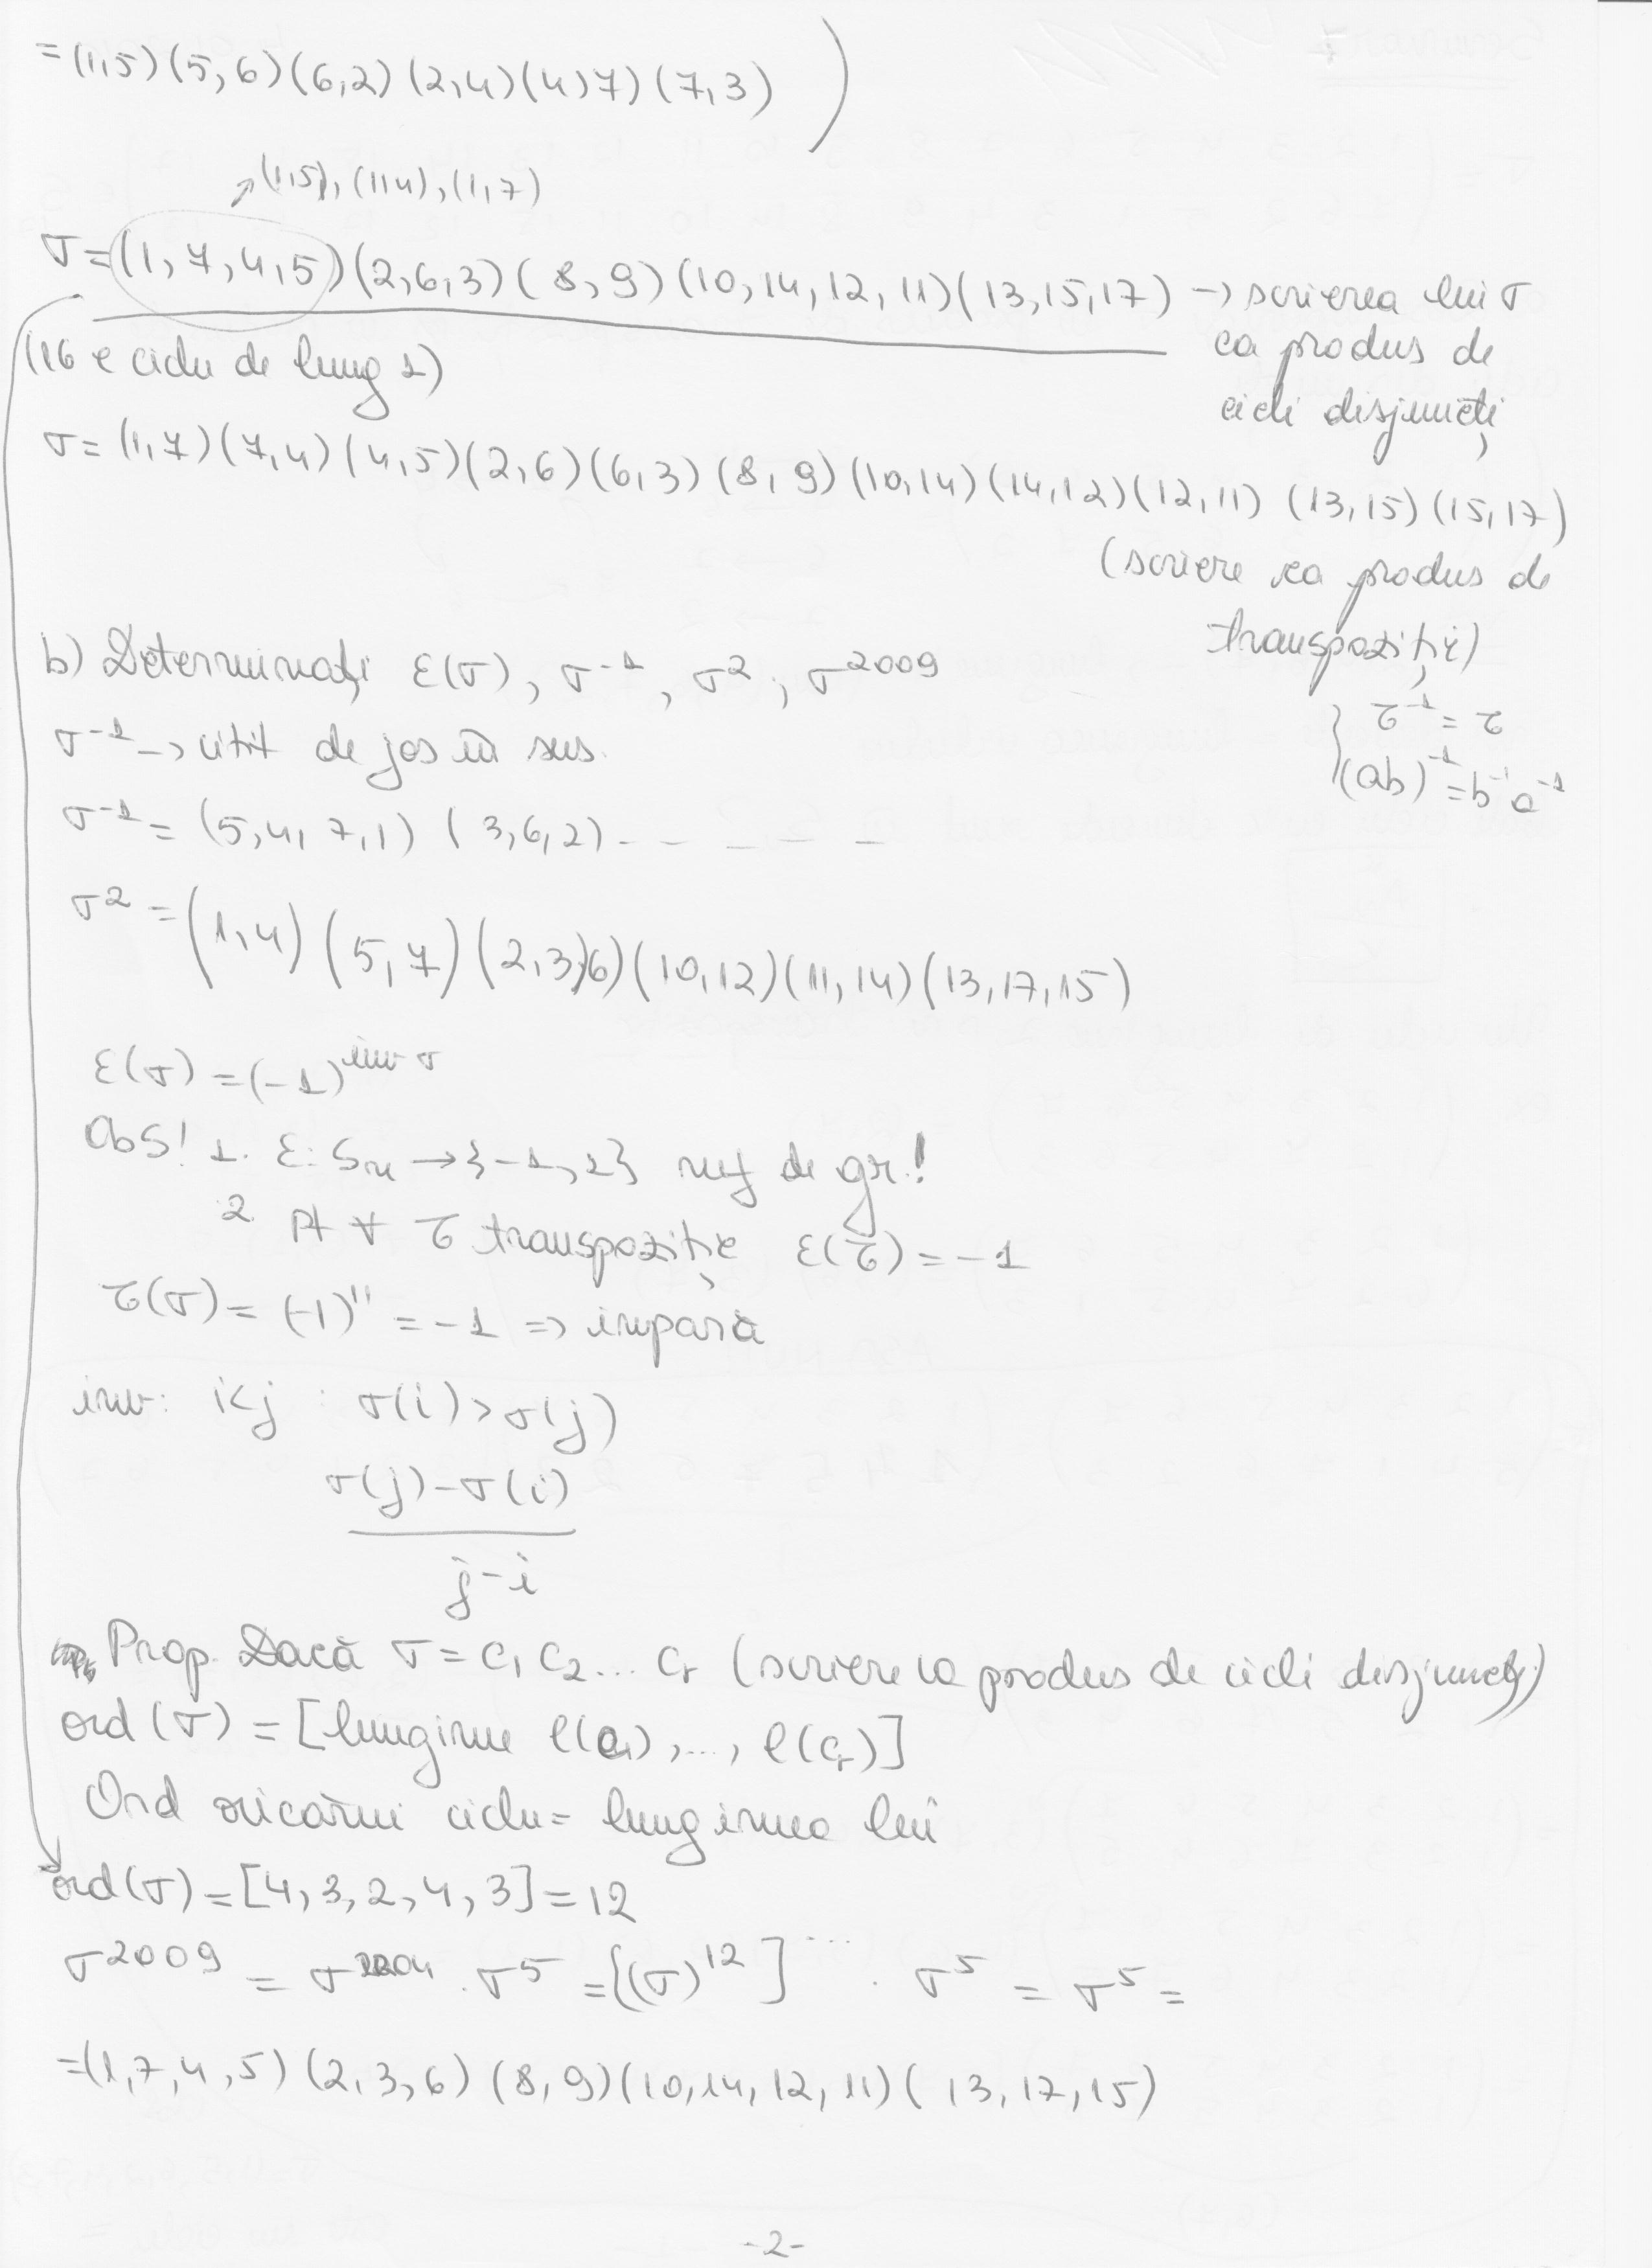 =(1,5)(5,6)(6,2)(2,4)(4,7)(7,3) )
↗(1,5),(1,4),(1,7)
σ=(1,7,4,5)(2,6,3)(8,9)(10,14,12,11)(13,15,17) → scrierea lui σ
ca produs de
cicli disjuncți
(16 e ciclu de lung 1)
σ=(1,7)(7,4)(4,5)(2,6)(6,3)(8,9)(10,14)(14,12)(12,11)(13,15)(15,17)
(scriere ca produs de
transpoziții)
b) Determinați ε(σ), σ⁻¹, σ², σ²⁰⁰⁹
τ⁻¹=τ
σ⁻¹ → citit de jos în sus.
(ab)⁻¹=b⁻¹a⁻¹
σ⁻¹=(5,4,7,1)(3,6,2)- - - - -
σ²=(1,4)(5,7)(2,3,6)(10,12)(11,14)(13,17,15)
ε(σ)=(-1)^inv σ
Obs! 1. ε: Sn → {-1,1} mf de gr.!
2. Pt ∀ τ transpoziție ε(τ)=-1
τ(σ)=(-1)¹¹=-1 => impară
inv: i<j : σ(i)>σ(j)
σ(j)-σ(i)
j-i
Prop. Dacă σ=c₁c₂...cr (scriere ca produs de cicli disjuncți)
ord(σ)=[lungime l(c₁),...,l(cr)]
Ord oricărui ciclu= lungimea lui
ord(σ)=[4,3,2,4,3]=12
σ²⁰⁰⁹ = σ²⁰⁰⁴ . σ⁵ =[(σ)¹²]^... . σ⁵ = σ⁵ =
=(1,7,4,5)(2,3,6)(8,9)(10,14,12,11)(13,17,15)
-2-